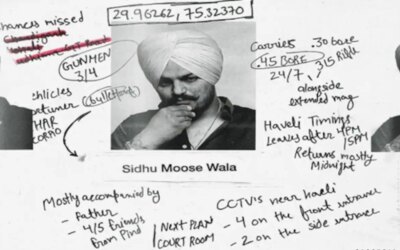 29.96262, 75.32370
hances missed
GUNMEN
3/4
(bulletproof
Carries .30 bore
.45 BORE
.315 Rifle
24/7,
alongside
extended mag
Haveli Timings
Leaves after 4PM
/5PM
Returns mostly
Midnight
Sidhu Moose Wala
Mostly accompanied by
- Father
- 4/5 friends
from Pind
NEXT PLAN
COURT ROOM
CCTV's near haveli
- 4 on the front entrance
- 2 on the side entrance